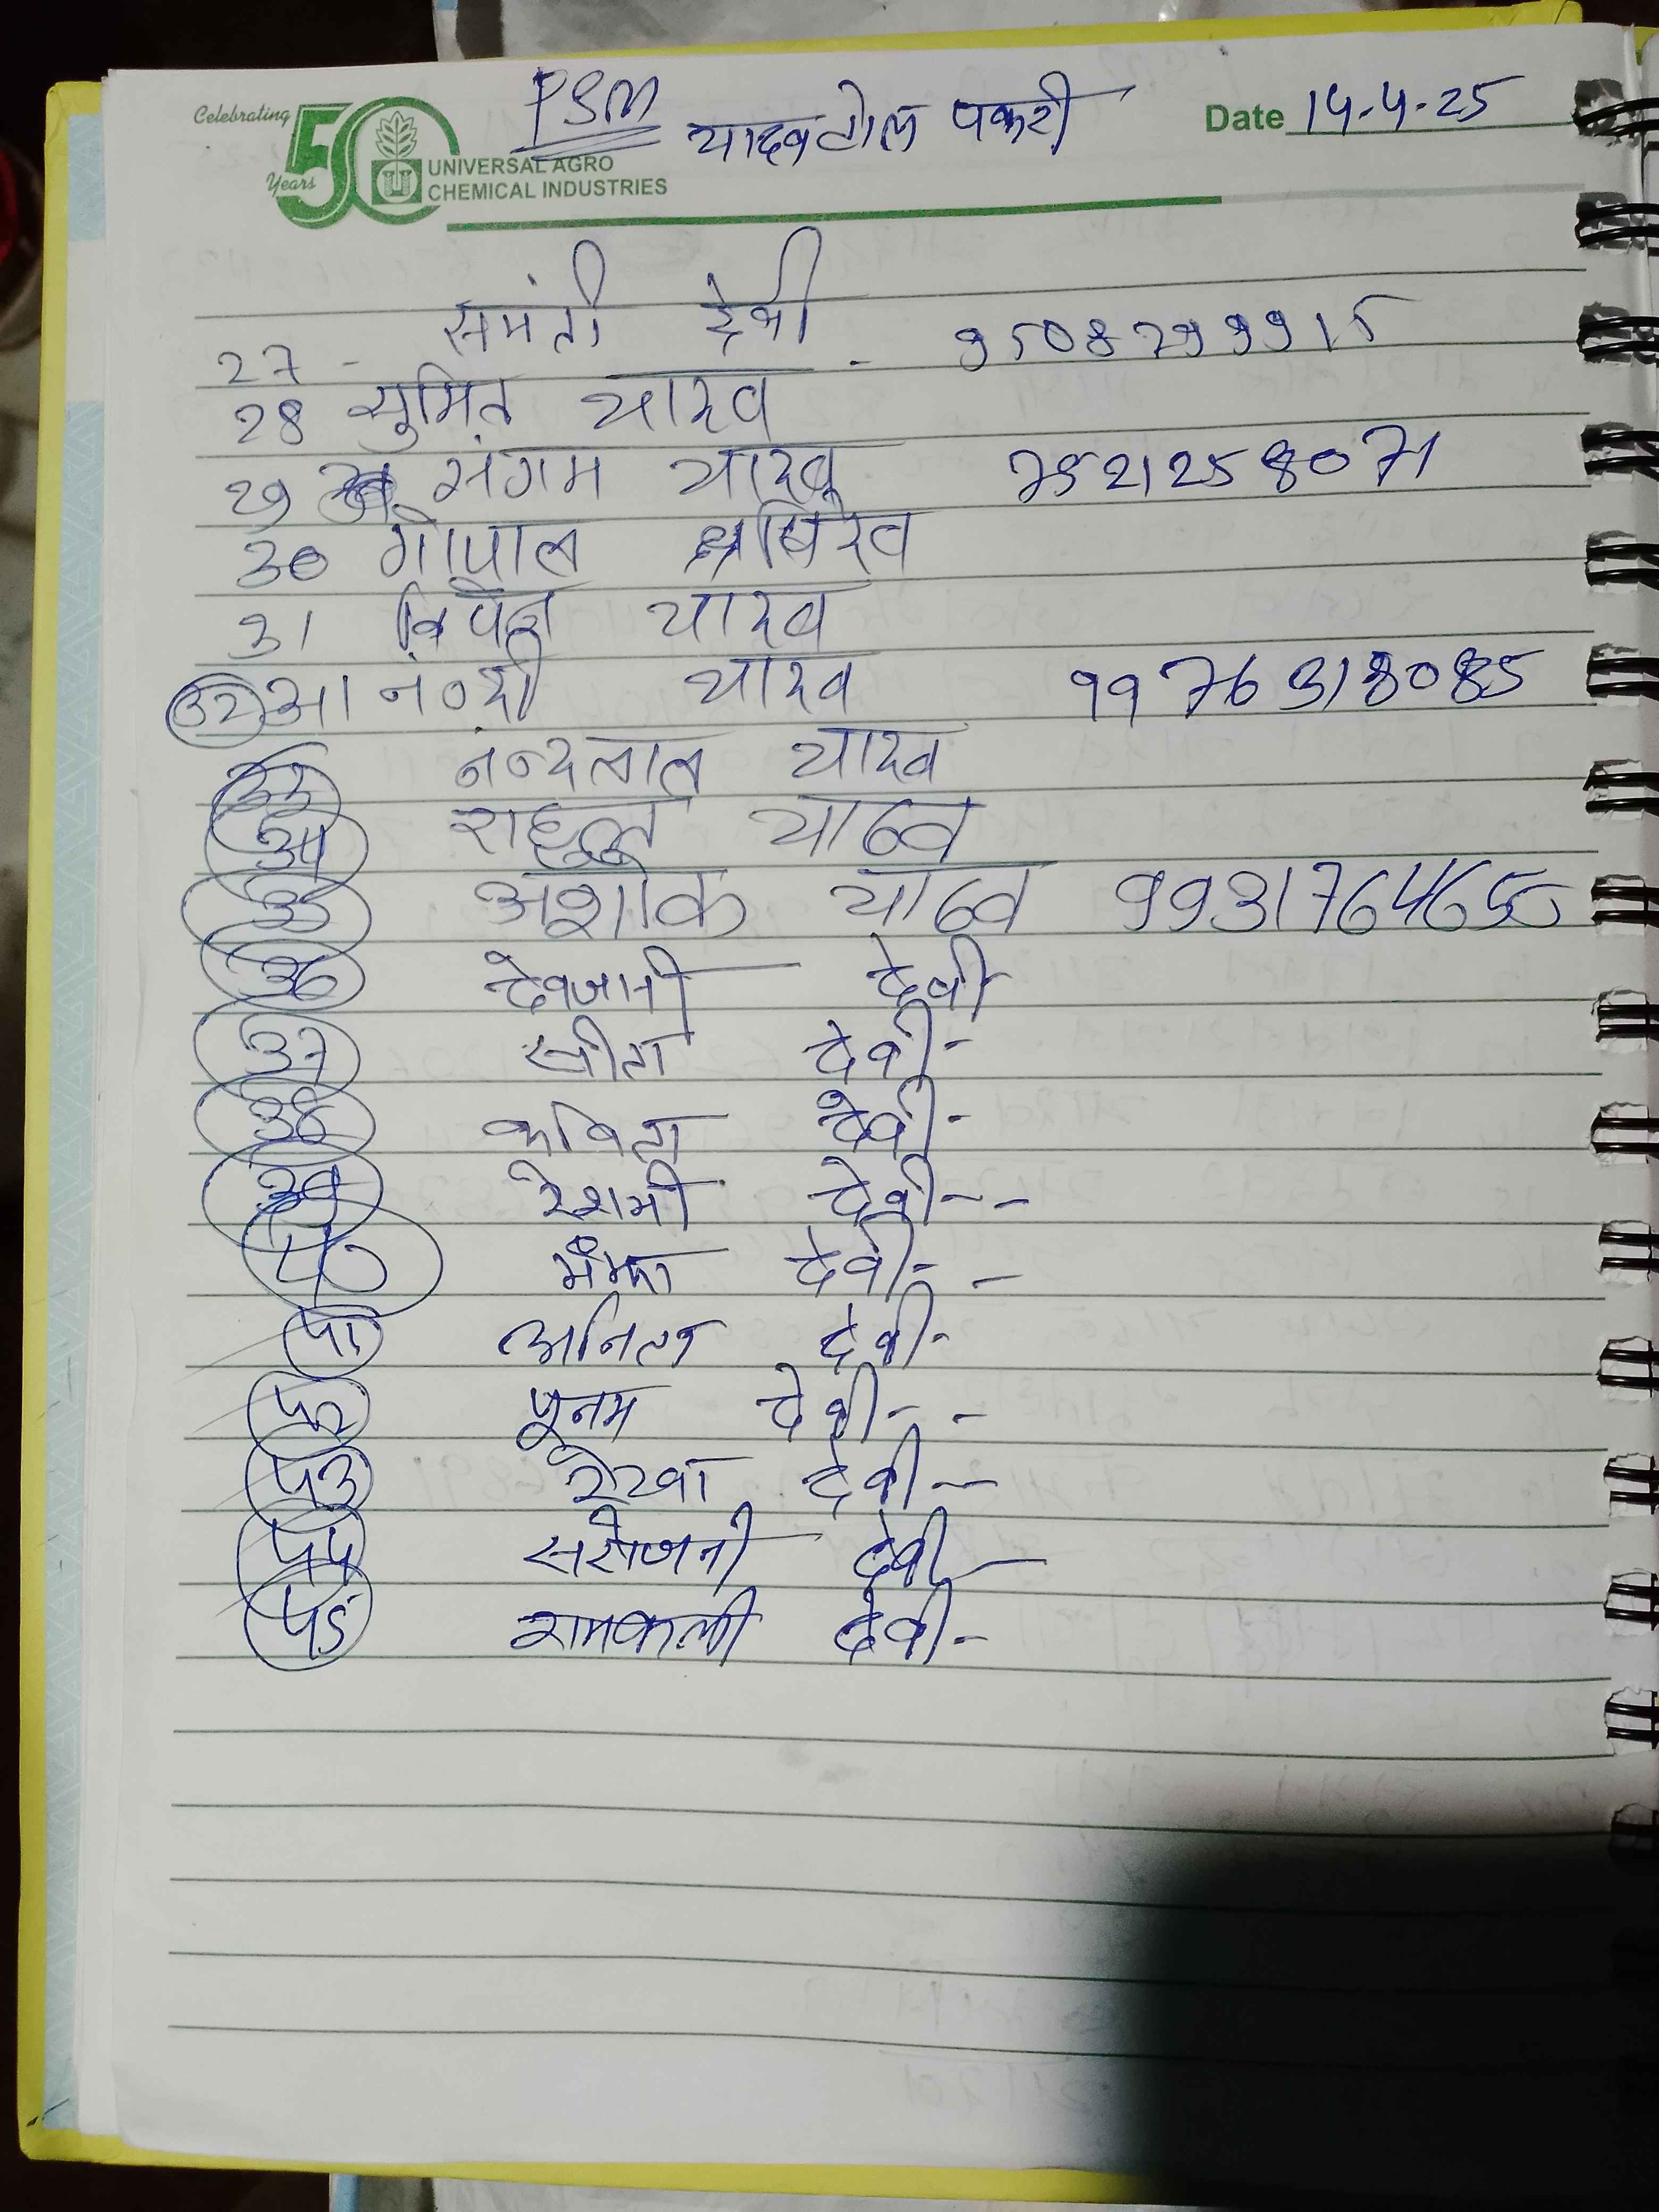 Celebrating 50 Years
UNIVERSAL AGRO
CHEMICAL INDUSTRIES
PSM यादवटोल पकरी
Date 14-4-25
27 - समंती देवी - 9508799915
28 सुमित यादव
29 संगम यादव 7521258071
30 गोपाल ऋषिदेव
31 यादव
32 आनन्दी यादव 9976318085
33 नन्दलाल यादव
34 राहुल यादव
35 अशोक यादव 9931764650
36 देवजानी देवी
37 सीता देवी-
38 कविता देवी-
39 रेशमी देवी--
40 देवी--
41 अनिता देवी-
42 पूनम देवी--
43 रेखा देवी--
44 सरोजनी देवी-
45 रामकली देवी-